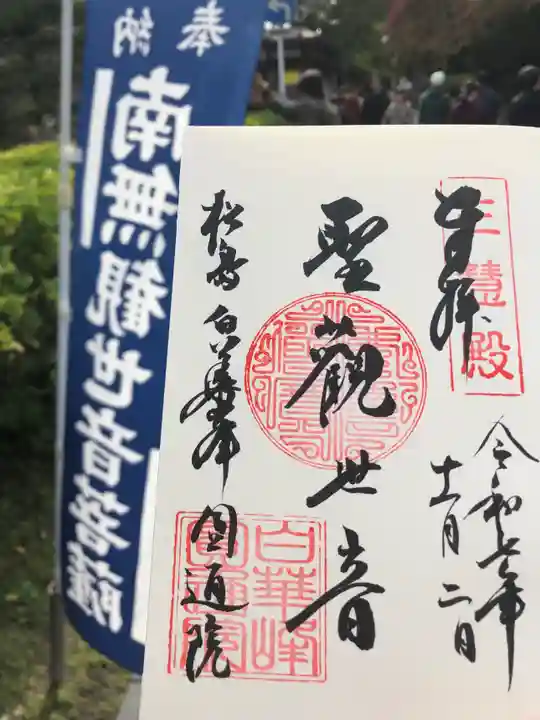 奉納
南無観世音菩薩
奉拝
三慧殿
令和七年
十一月二日
聖觀世音
松島 白華峰 圓通院
白華峰
圓通院